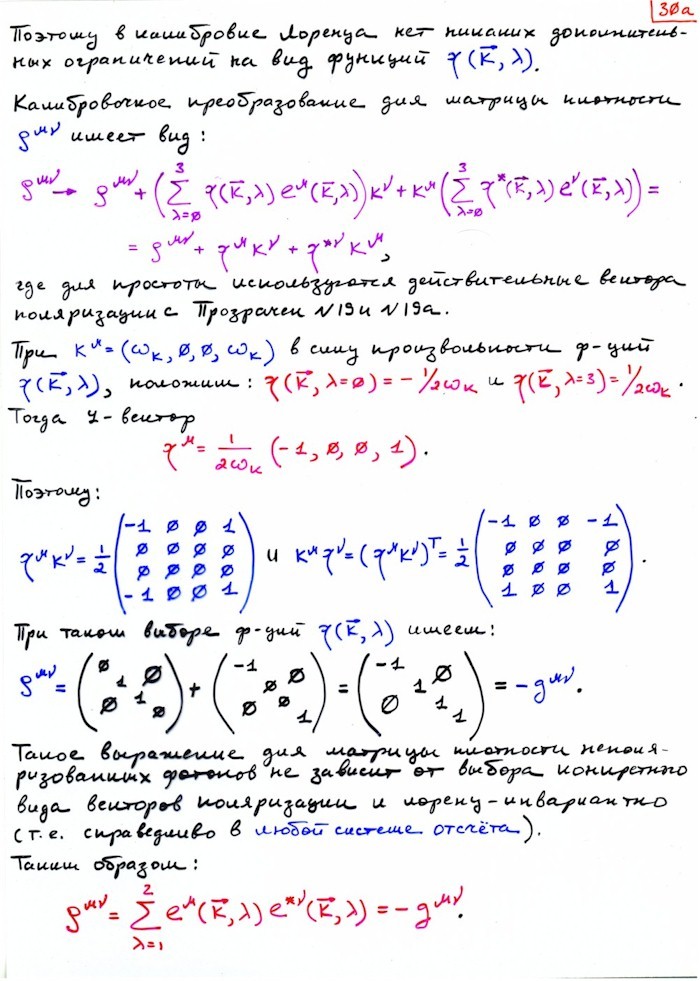 30а
Поэтому в калибровке Лоренца нет никаких дополнитель-
ных ограничений на вид функций η(k⃗, λ).
Калибровочное преобразование для матрицы плотности
ρ^{μν} имеет вид:
ρ^{μν} → ρ^{μν} + (∑_{λ=0}^{3} η(k⃗, λ) e^μ(k⃗, λ)) k^ν + k^μ (∑_{λ=0}^{3} η^*(k⃗, λ) e^ν(k⃗, λ)) =
= ρ^{μν} + η^μ k^ν + η^{*ν} k^μ,
где для простоты используются действительные вектора
поляризации с Прозрачек N19 и N19а.
При k^μ = (ω_k, 0, 0, ω_k) в силу произвольности ф-ций
η(k⃗, λ), положим: η(k⃗, λ=0) = -1/2ω_k и η(k⃗, λ=3) = 1/2ω_k.
Тогда 4-вектор
η^μ = 1/2ω_k (-1, 0, 0, 1).
Поэтому:
η^μ k^ν = 1/2 (-1 0 0 1 / 0 0 0 0 / 0 0 0 0 / -1 0 0 1) и k^μ η^ν = (η^μ k^ν)^T = 1/2 (-1 0 0 -1 / 0 0 0 0 / 0 0 0 0 / 1 0 0 1).
При таком выборе ф-ций η(k⃗, λ) имеем:
ρ^{μν} = (0 1 0 / 0 1 0) + (-1 0 0 / 0 0 1) = (-1 1 0 / 0 1 1) = -g^{μν}.
Такое выражение для матрицы плотности неполя-
ризованных фотонов не зависит от выбора конкретного
вида векторов поляризации и лоренц-инвариантно
(т.е. справедливо в любой системе отсчёта).
Таким образом:
ρ^{μν} = ∑_{λ=1}^{2} e^μ(k⃗, λ) e^{*ν}(k⃗, λ) = -g^{μν}.